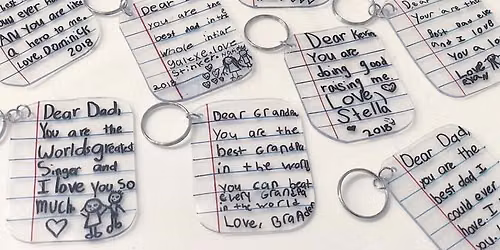 ad ever ha
AN you are like
a hero to me.
Love, Dominick
2018
Dear Dad,
you are the
best dad in the
whole intiar
galexe, love
Stinker
2018
Dear Kevin
You are
doing good
raising me.
Love,
Stella
2018
Dear
Your are th
Best Dad eve
and I love
you a
Love
Dear Dad,
You are the
Worlds greatest
Singer and
I love you so
much
Dear Grandpa
You are the
best Grandpa
in the world
you can beat
every Grandpa
in the world
Love, Branden
Dear Dad,
you are the
best dad I
could ever
have. I